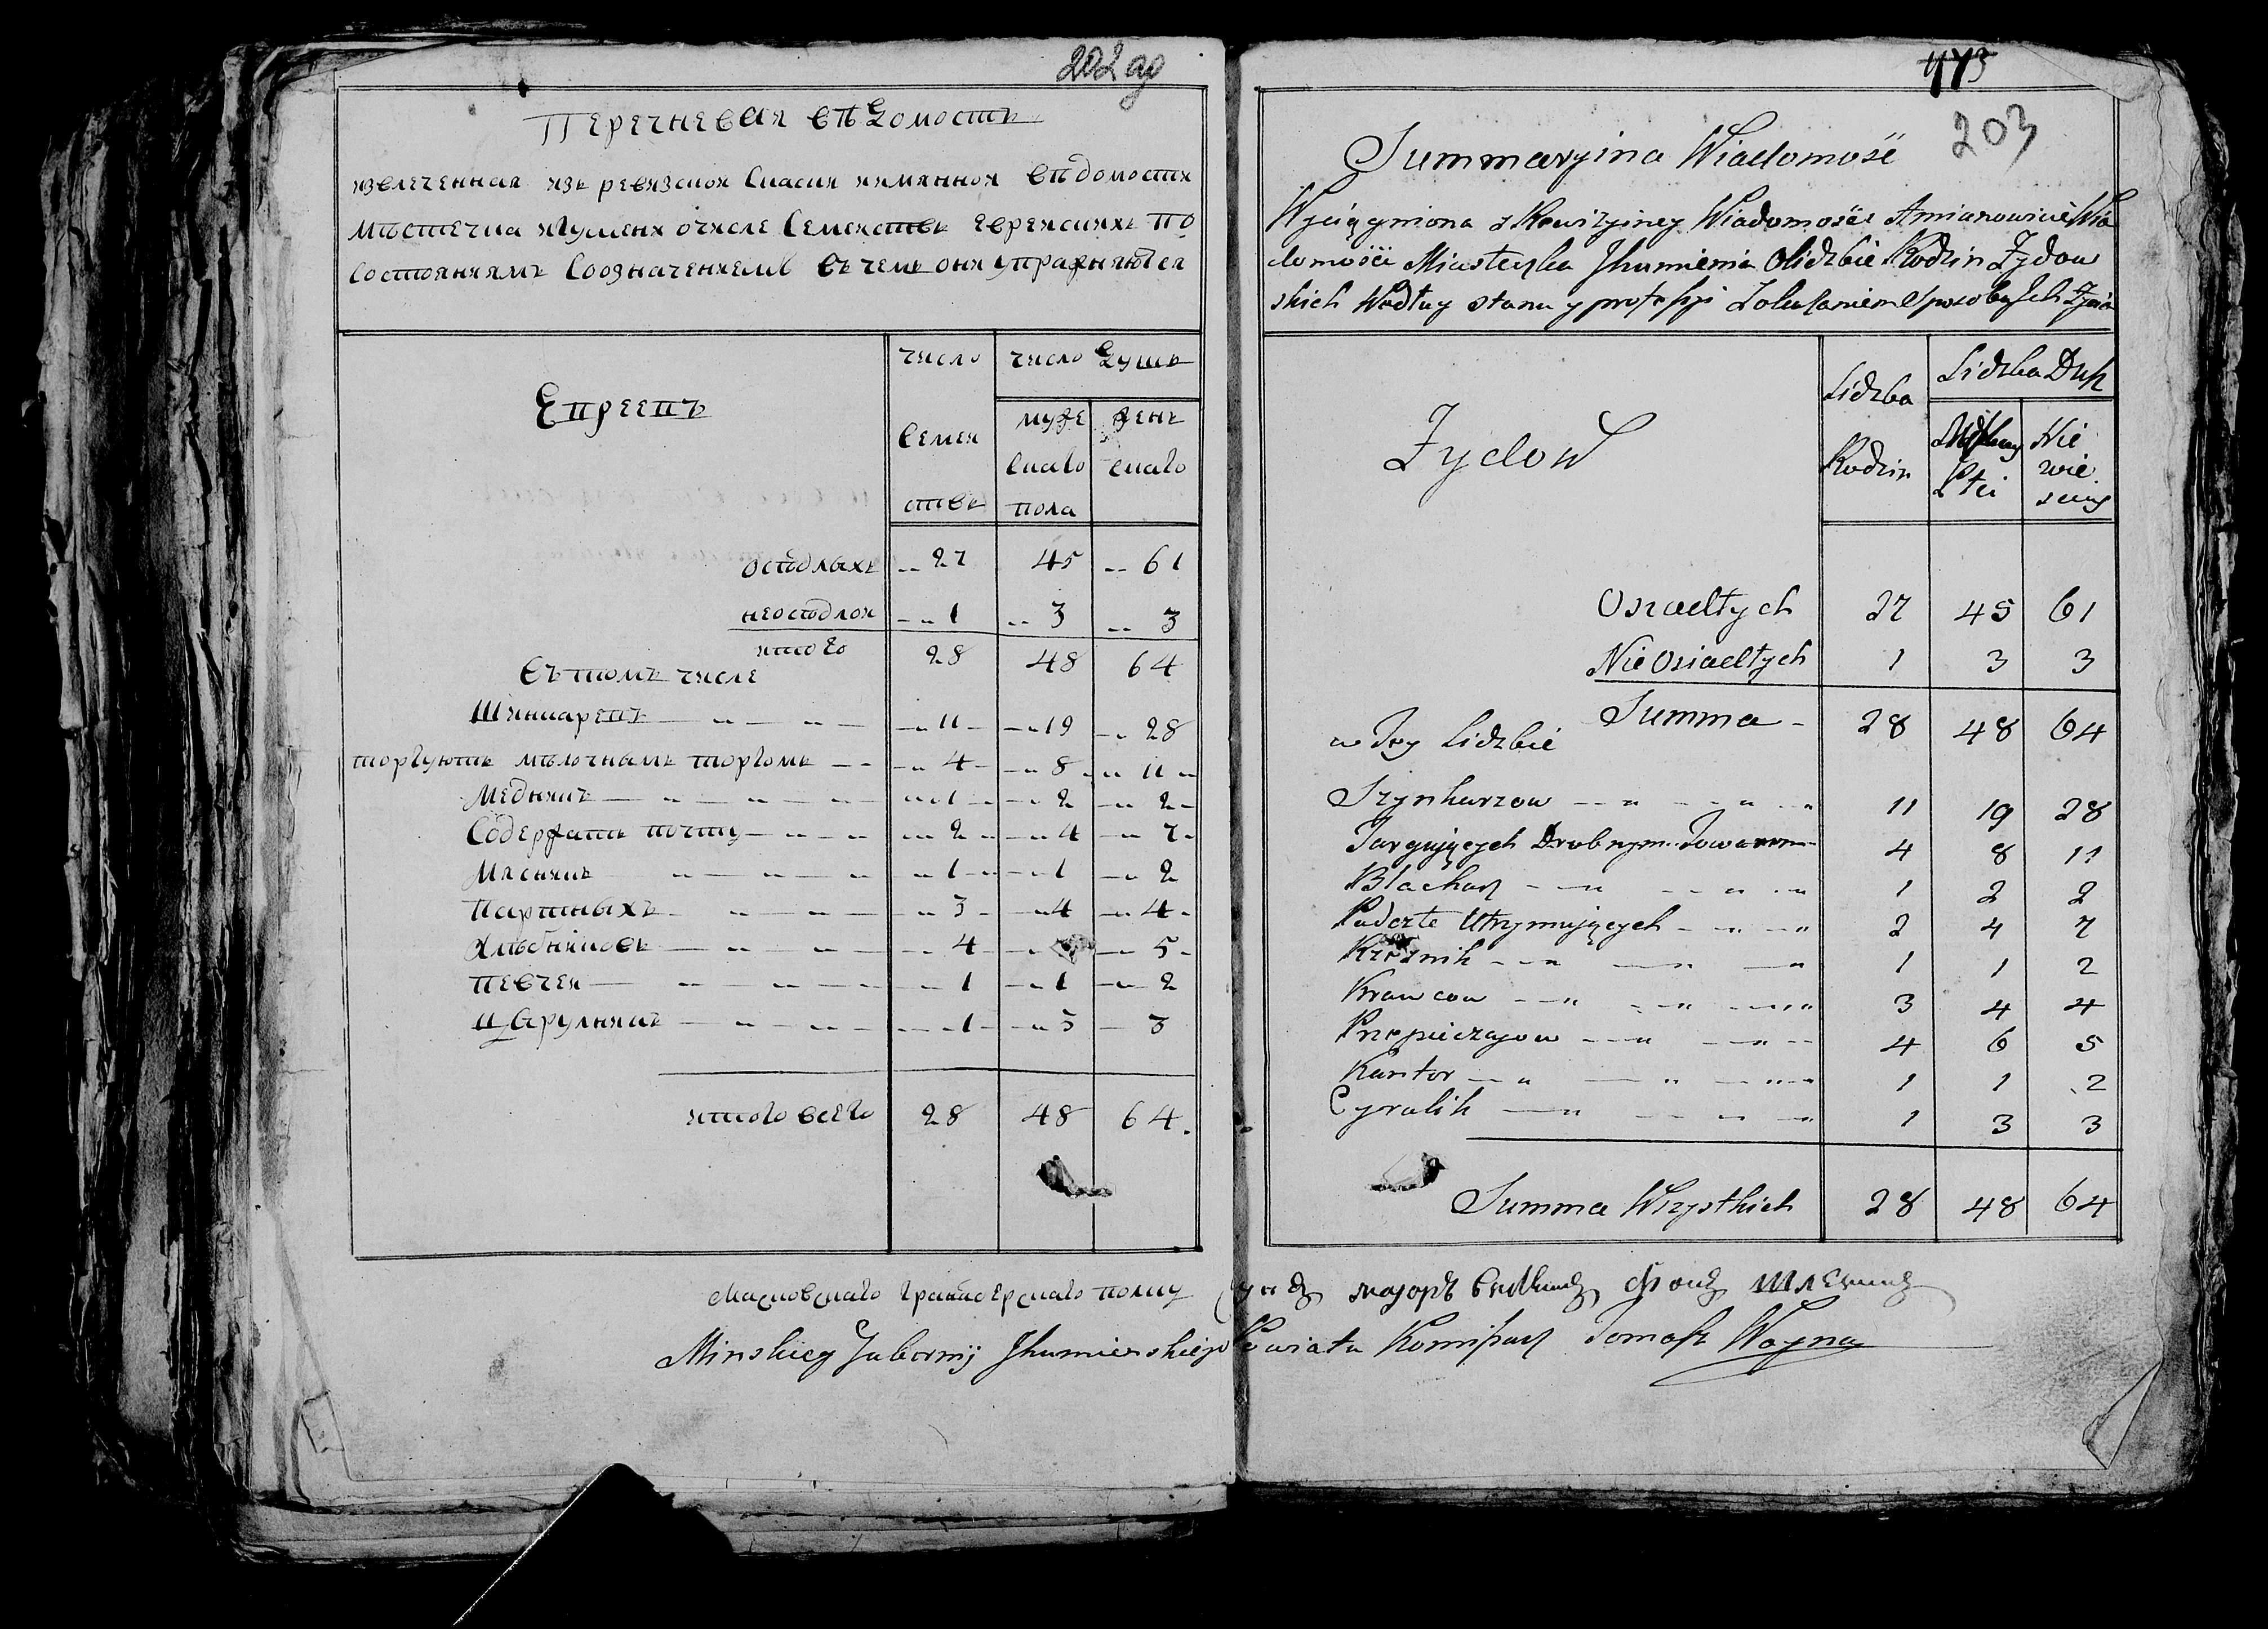 202 об
Перечневая вѣдомость
извлеченная изъ ревизской Сказки имянной вѣдомости
мѣстечка Игуменя о числе Семействъ еврейскихъ по
состояниямъ Сообозначениемъ въ чемъ они упражняются
Евреевъ
число Семействъ
число душъ
мужескаго пола
женскаго
осѣдлыхъ 27 45 61
неосѣдлой 1 3 3
итого 28 48 64
въ томъ числе
Шинкаревъ 11 19 28
торгуютъ мѣлочнымъ торгомъ 4 8 11
Медникъ 1 2 2
Содержатъ почту 2 4 7
Мясникъ 1 1 2
Партныхъ 3 4 4
Хлѣбниковъ 4 5
певчей 1 1 2
цырулникъ 1 3 3
итого всего 28 48 64.
473
203
Summaryina Wiadomość
Wyciągniona z Rewizyiney Wiadomości Amianowicie Wia
domości Miasteczka Jhumienia O lidzbie Rodzin Zydow
skich Według stanu y professyi
Zydow
Lidzba Rodzin
Lidzba Dusz
Męskiey Płci
Niewiesciey
Osiadłych 27 45 61
Nie Osiadłych 1 3 3
Summa 28 48 64
w Tey Lidzbie
Szynkarzow 11 19 28
Targujących Drobnym Towarem 4 8 11
Blacharz 1 2 2
Padczte Utrzymujących 2 4 7
Rzeznik 1 1 2
Krawcow 3 4 4
Przepieczajow 4 6 5
Kantor 1 1 2
Cyrulik 1 3 3
Summa Wszystkich 28 48 64
Московскаго гранодерскаго полку маіоръ фонъ
Minskiey Gubernij Jhumienskiego Powiatu Komissarz Tomasz Woyna